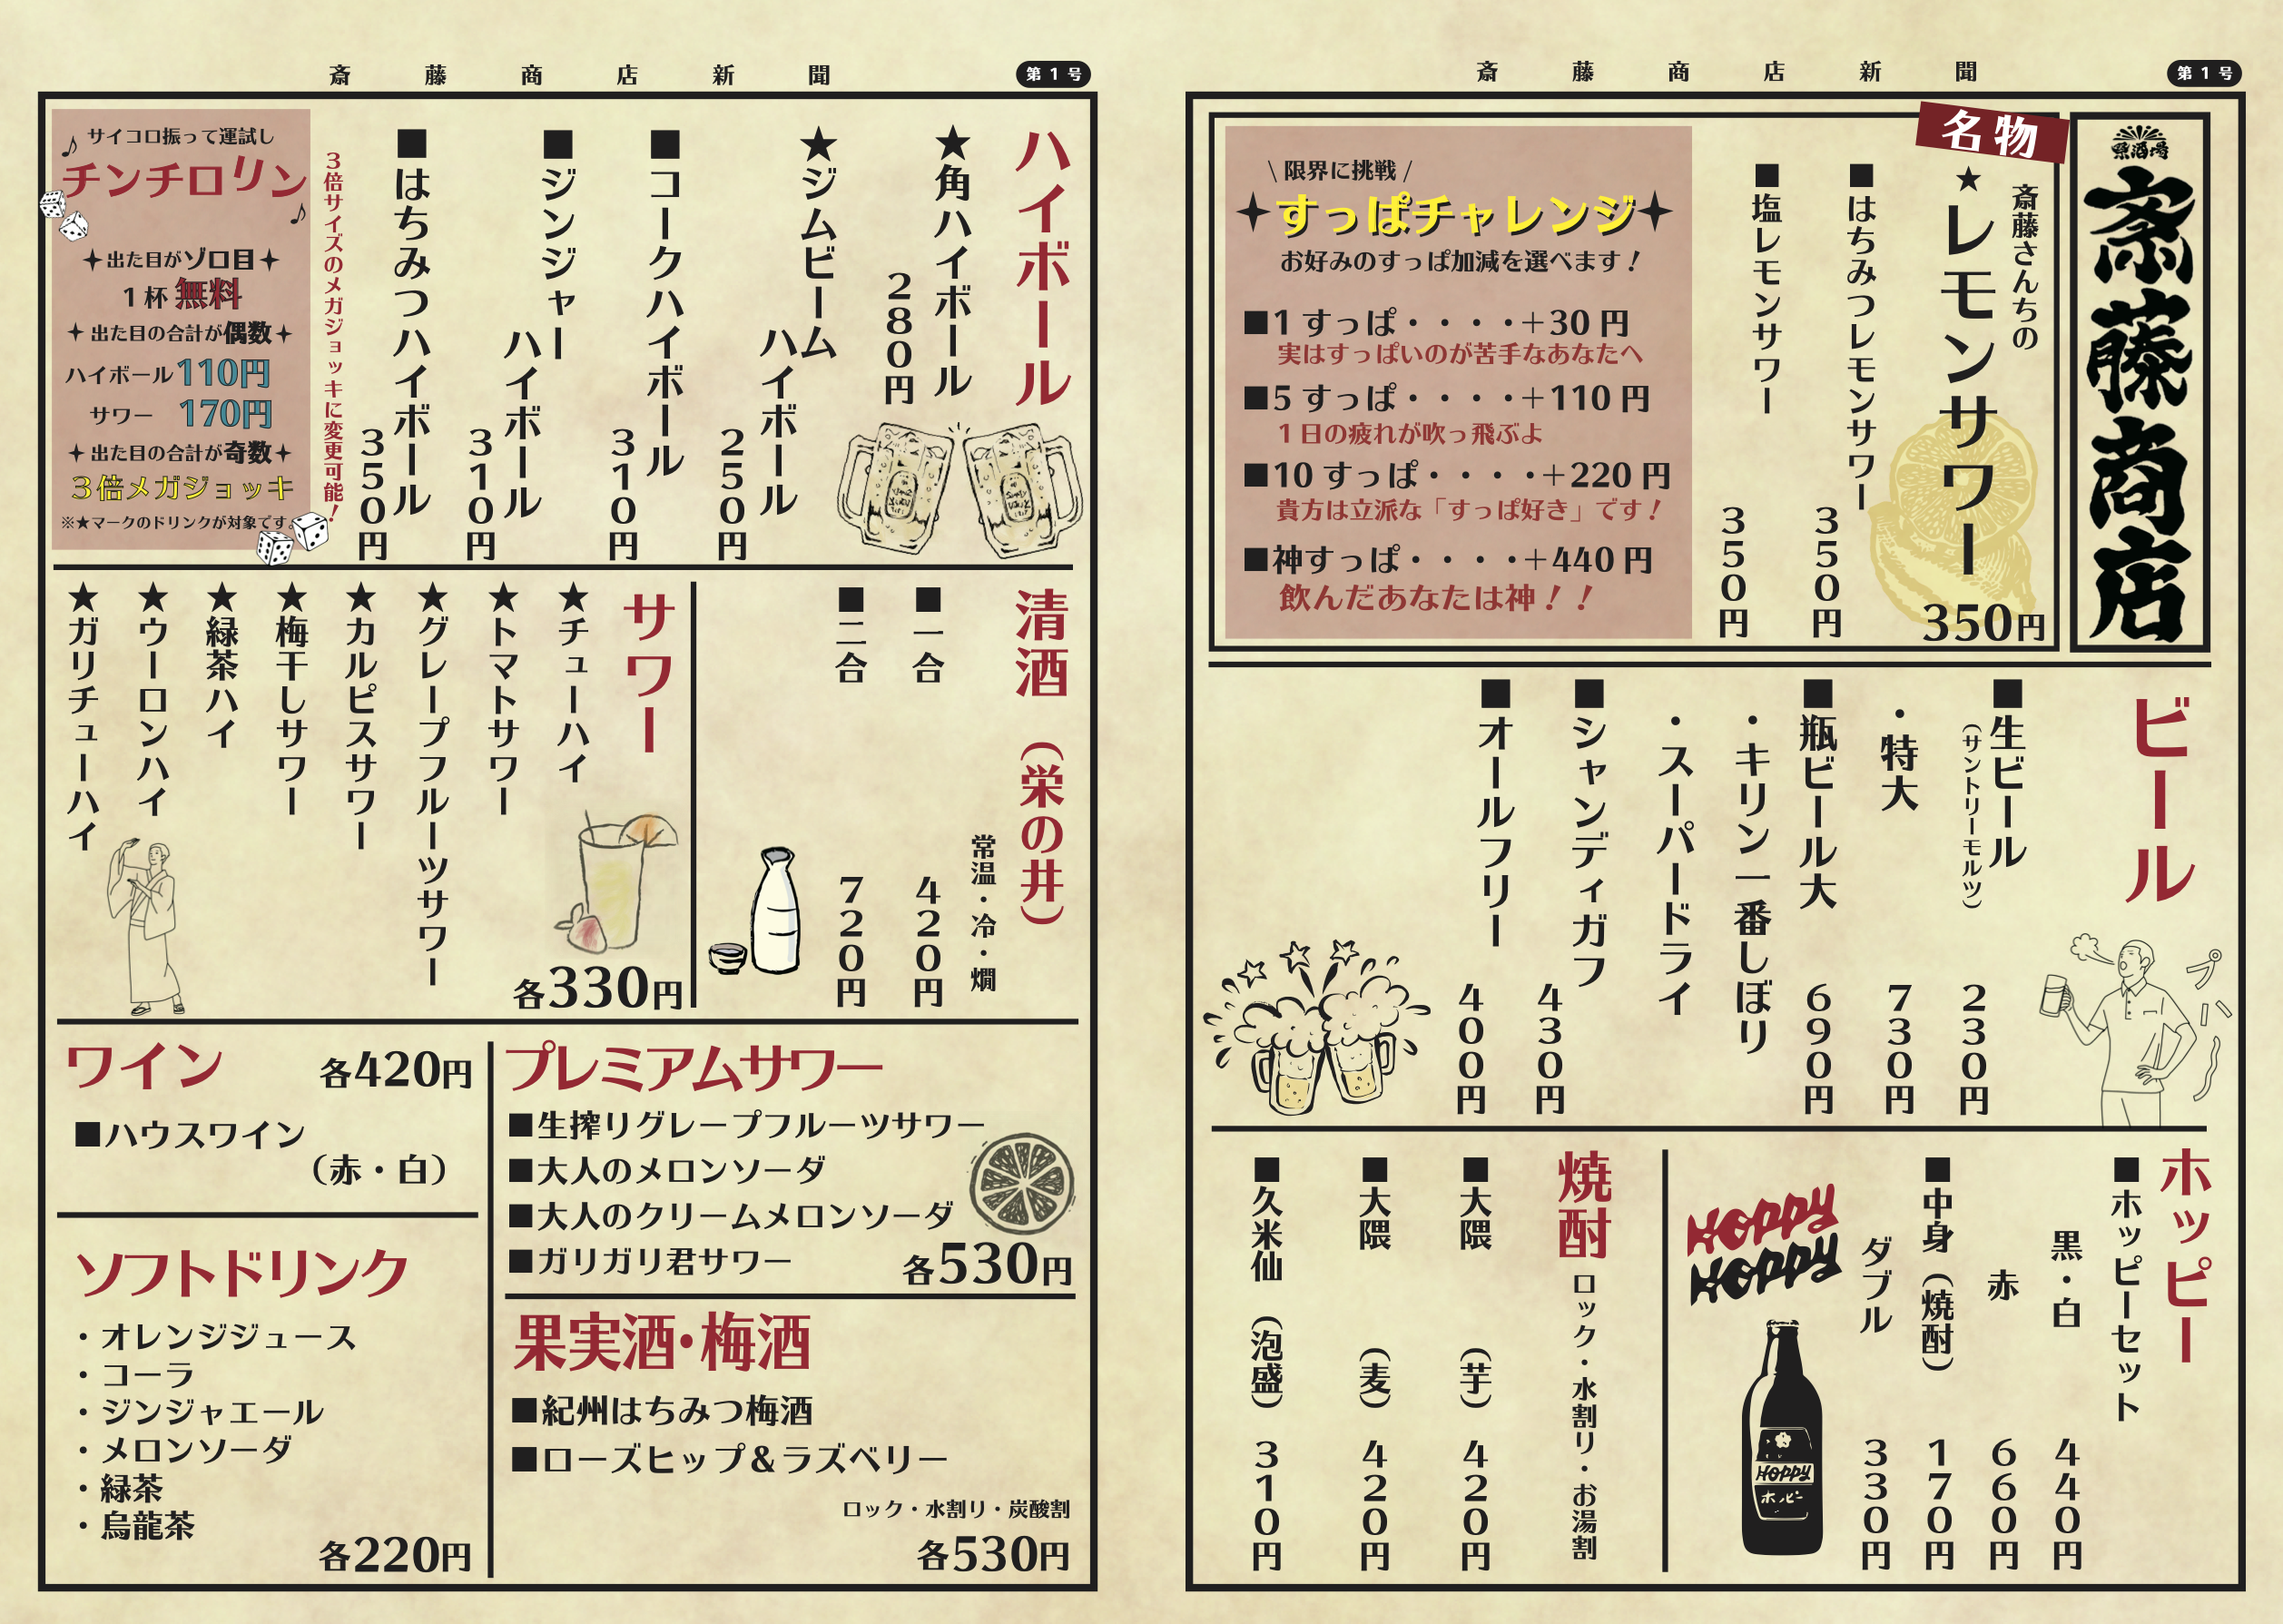 斎藤商店新聞
第1号
大衆酒場
斎藤商店
名物
斎藤さんちの
★レモンサワー
350円
■はちみつレモンサワー
350円
■塩レモンサワー
350円
\ 限界に挑戦 /
すっぱチャレンジ
お好みのすっぱ加減を選べます！
■1 すっぱ・・・・+30 円
実はすっぱいのが苦手なあなたへ
■5 すっぱ・・・・+110 円
１日の疲れが吹っ飛ぶよ
■10 すっぱ・・・・+220 円
貴方は立派な「すっぱ好き」です！
■神すっぱ・・・・+440 円
飲んだあなたは神！！
ビール
■生ビール
（サントリーモルツ）
230円
・特大
730円
■瓶ビール大
690円
・キリン一番しぼり
・スーパードライ
■シャンディガフ
430円
■オールフリー
400円
プハハ
ホッピー
■ホッピーセット
黒・白
440円
赤
660円
■中身（焼酎）
170円
ダブル
330円
HOPPY
HOPPY
HOPPY
ホッピー
焼酎
ロック・水割り・お湯割
■大隈（芋）
420円
■大隈（麦）
420円
■久米仙（泡盛）
310円
斎藤商店新聞
第1号
ハイボール
★角ハイボール
280円
★ジムビーム
ハイボール
250円
■コークハイボール
310円
■ジンジャー
ハイボール
310円
■はちみつハイボール
350円
３倍サイズのメガジョッキに変更可能！
♪サイコロ振って運試し
チンチロリン♪
出た目がゾロ目
１杯 無料
出た目の合計が偶数
ハイボール110円
サワー 170円
出た目の合計が奇数
３倍メガジョッキ
※★マークのドリンクが対象です。
清酒（栄の井）
常温・冷・燗
■一合
420円
■二合
720円
サワー
★チューハイ
★トマトサワー
★グレープフルーツサワー
★カルピスサワー
★梅干しサワー
★緑茶ハイ
★ウーロンハイ
★ガリチューハイ
各330円
プレミアムサワー
■生搾りグレープフルーツサワー
■大人のメロンソーダ
■大人のクリームメロンソーダ
■ガリガリ君サワー
各530円
果実酒・梅酒
■紀州はちみつ梅酒
■ローズヒップ＆ラズベリー
ロック・水割り・炭酸割
各530円
ワイン
各420円
■ハウスワイン
（赤・白）
ソフトドリンク
・オレンジジュース
・コーラ
・ジンジャエール
・メロンソーダ
・緑茶
・烏龍茶
各220円